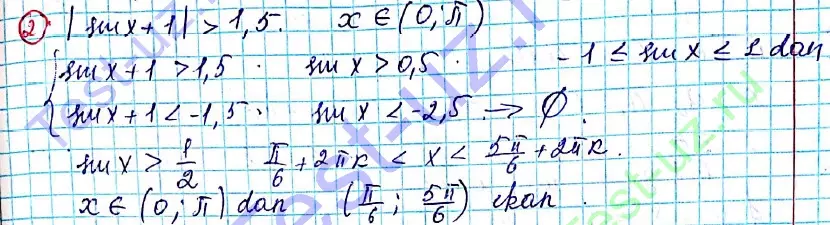 ② |sin x + 1| > 1,5. x ∈ (0; π)
{ sin x + 1 > 1,5. sin x > 0,5. -1 ≤ sin x ≤ 1 dan
sin x + 1 < -1,5. sin x < -2,5. → ∅.
sin x > 1/2 π/6 + 2πk < x < 5π/6 + 2πk.
x ∈ (0; π) dan (π/6; 5π/6) ekan.
Test-uz.ru